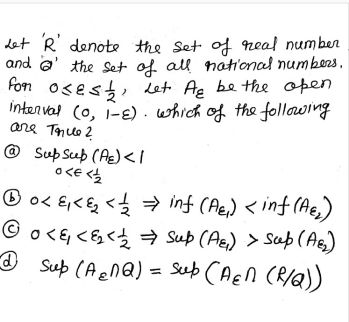 Let 'R' denote the set of real number
and 'Q' the set of all rational numbers.
For 0≤ε≤½, Let Aε be the open
interval (0, 1-ε). which of the following
are True?
ⓐ Sup Sup (Aε) < 1
0<ε<½
ⓑ 0< ε₁<ε₂ <½ ⇒ inf (Aε₁) < inf (Aε₂)
ⓒ 0<ε₁ <ε₂<½ ⇒ Sup (Aε₁) > Sup (Aε₂)
ⓓ Sup (Aε∩Q) = Sup (Aε∩ (R/Q))